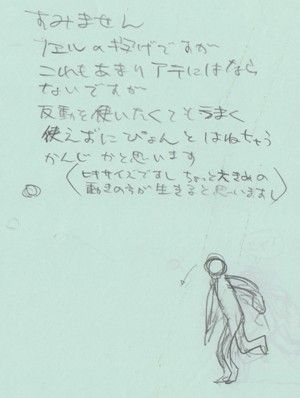 すみません
カエルの投げですが
これもあまりアテにはなら
ないですが
反動を使いたくてもうまく
使えずにぴょんとはねちゃう
かんじかと思います
(ヒキサイズですし ちょっと大きめの
動きの方が生きると思いますし)